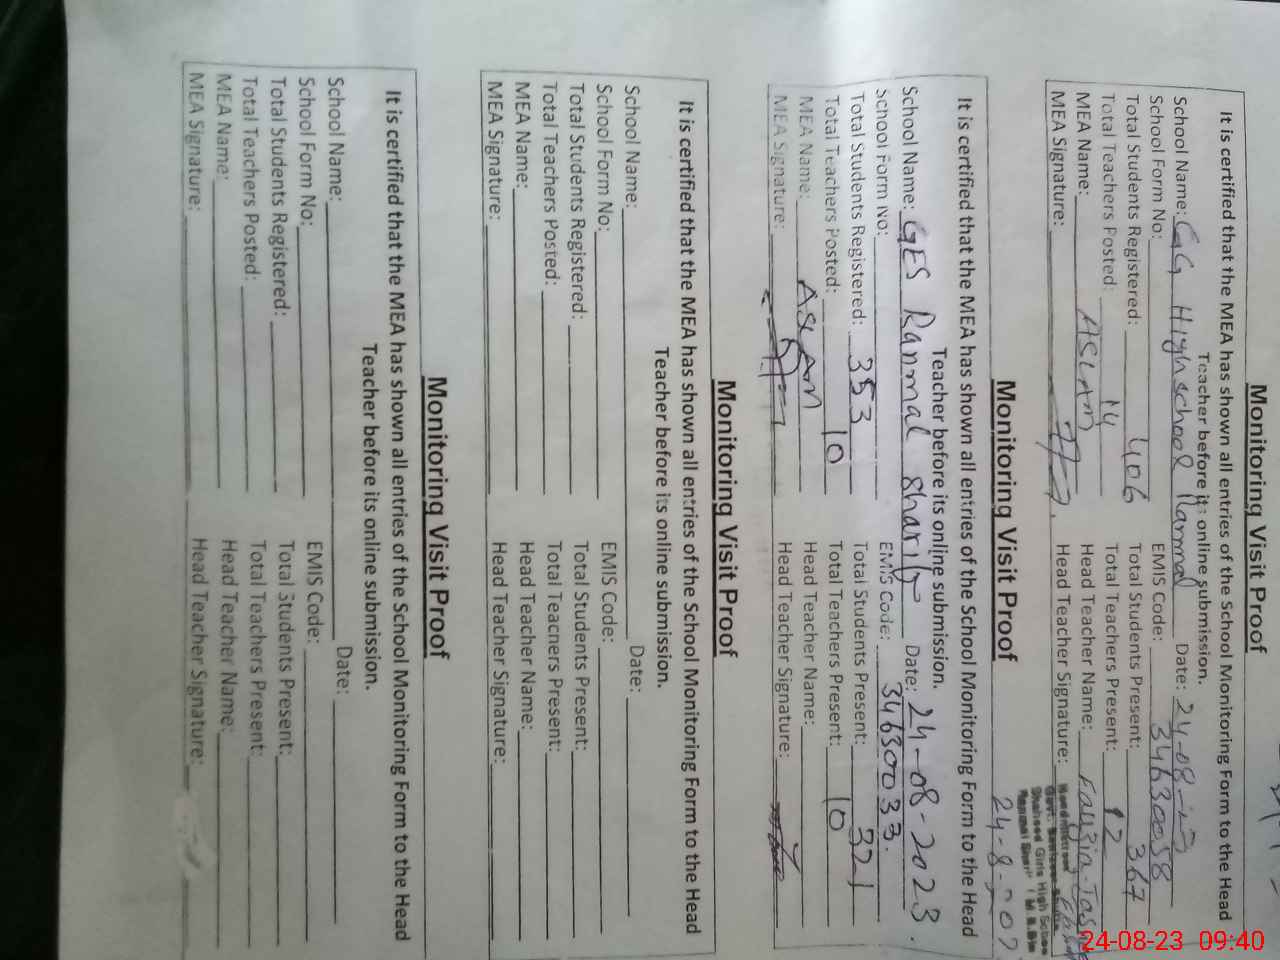 Monitoring Visit Proof
It is certified that the MEA has shown all entries of the School Monitoring Form to the Head
Teacher before its online submission.
School Name: GG High school Ranmal Date: 24-08-
School Form No: EMIS Code: 34630058
Total Students Registered: 406 Total Students Present: 367
Total Teachers Posted: 14 Total Teachers Present: 12
MEA Name: ASLAM Head Teacher Name: Fauzia
MEA Signature: Head Teacher Signature:
Headmistress
Govt.
Shaheed Girls High School
Ranmal Sharif (M.B.Din
24-8-202
Monitoring Visit Proof
It is certified that the MEA has shown all entries of the School Monitoring Form to the Head
Teacher before its online submission.
School Name: GES Ranmal sharif Date: 24-08-2023.
School Form No: EMIS Code: 34630033.
Total Students Registered: 353 Total Students Present: 321
Total Teachers Posted: 10 Total Teachers Present: 10
MEA Name: ASLAM Head Teacher Name:
MEA Signature: Head Teacher Signature:
Monitoring Visit Proof
It is certified that the MEA has shown all entries of the School Monitoring Form to the Head
Teacher before its online submission.
School Name: Date:
School Form No: EMIS Code:
Total Students Registered: Total Students Present:
Total Teachers Posted: Total Teachers Present:
MEA Name: Head Teacher Name:
MEA Signature: Head Teacher Signature:
Monitoring Visit Proof
It is certified that the MEA has shown all entries of the School Monitoring Form to the Head
Teacher before its online submission.
School Name: Date:
School Form No: EMIS Code:
Total Students Registered: Total Students Present:
Total Teachers Posted: Total Teachers Present:
MEA Name: Head Teacher Name:
MEA Signature: Head Teacher Signature:
24-08-23 09:40